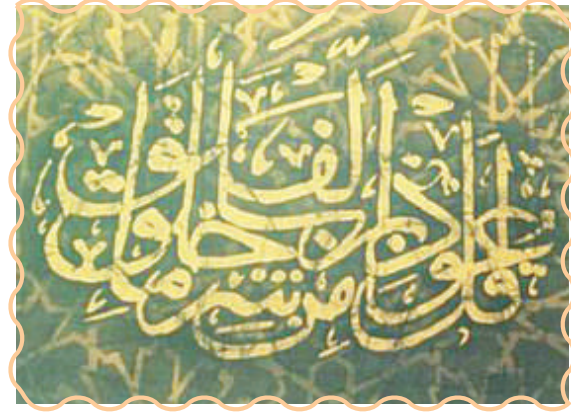 قل أعوذ برب الفلق من شر ما خلق